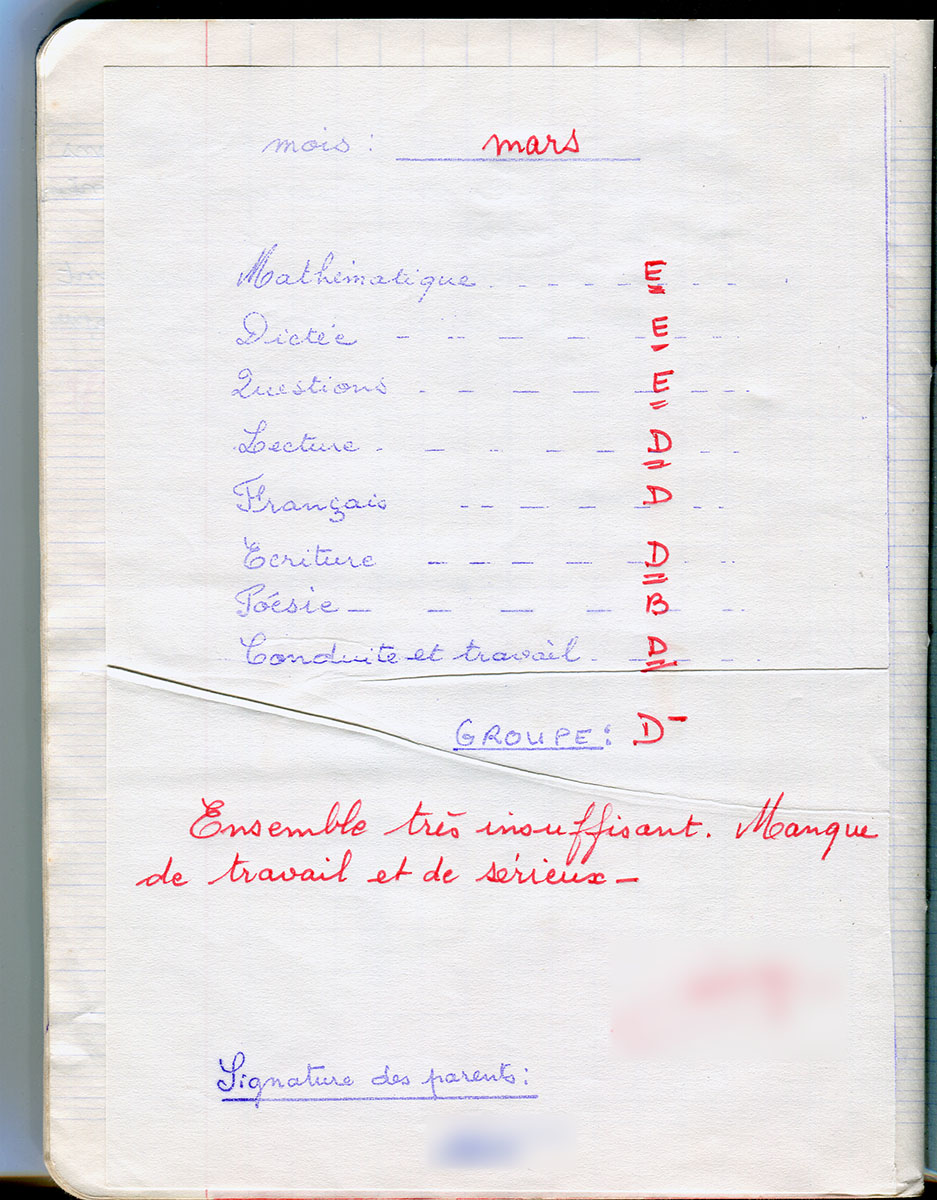 mois : mars
Mathématique E
Dictée E
Questions E
Lecture D
Français D
Ecriture D
Poésie B
Conduite et travail D
GROUPE : D-
Ensemble très insuffisant. Manque
de travail et de sérieux -
Signature des parents :